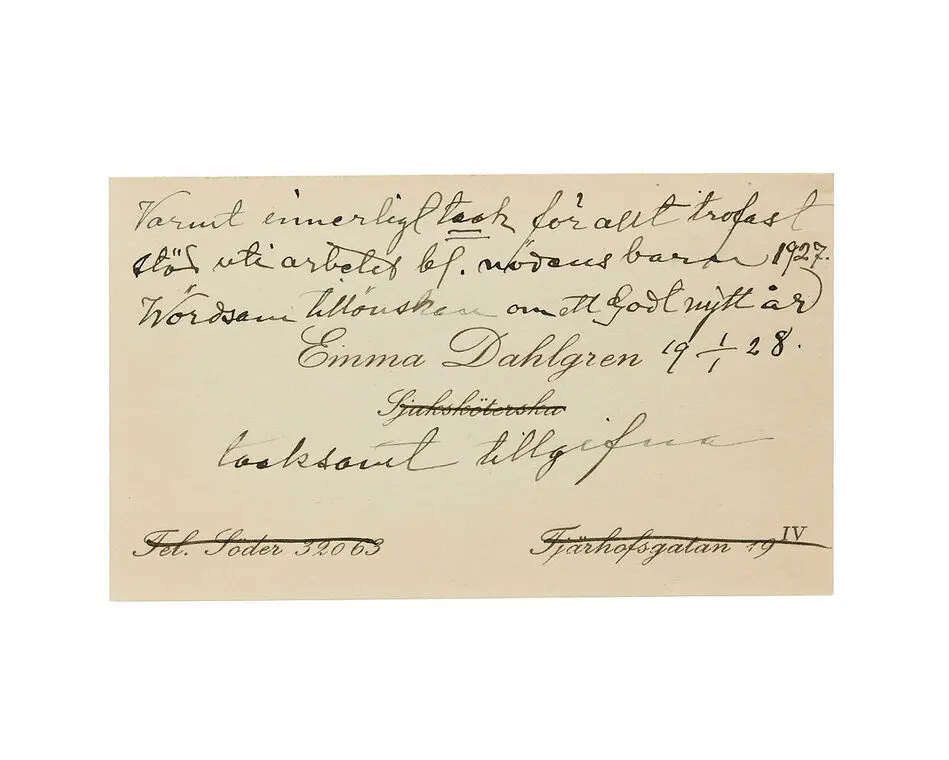 Varmt innerligt tack för allt trofast
stöd uti arbetet bl. nödens barn 1927.
Wördsam tillönskan om ett Godt nytt år
Emma Dahlgren 19 1/1 28.
Sjuksköterska
tacksamt tillgifna
Tel. Söder 32063
Tjärhofsgatan 19 IV